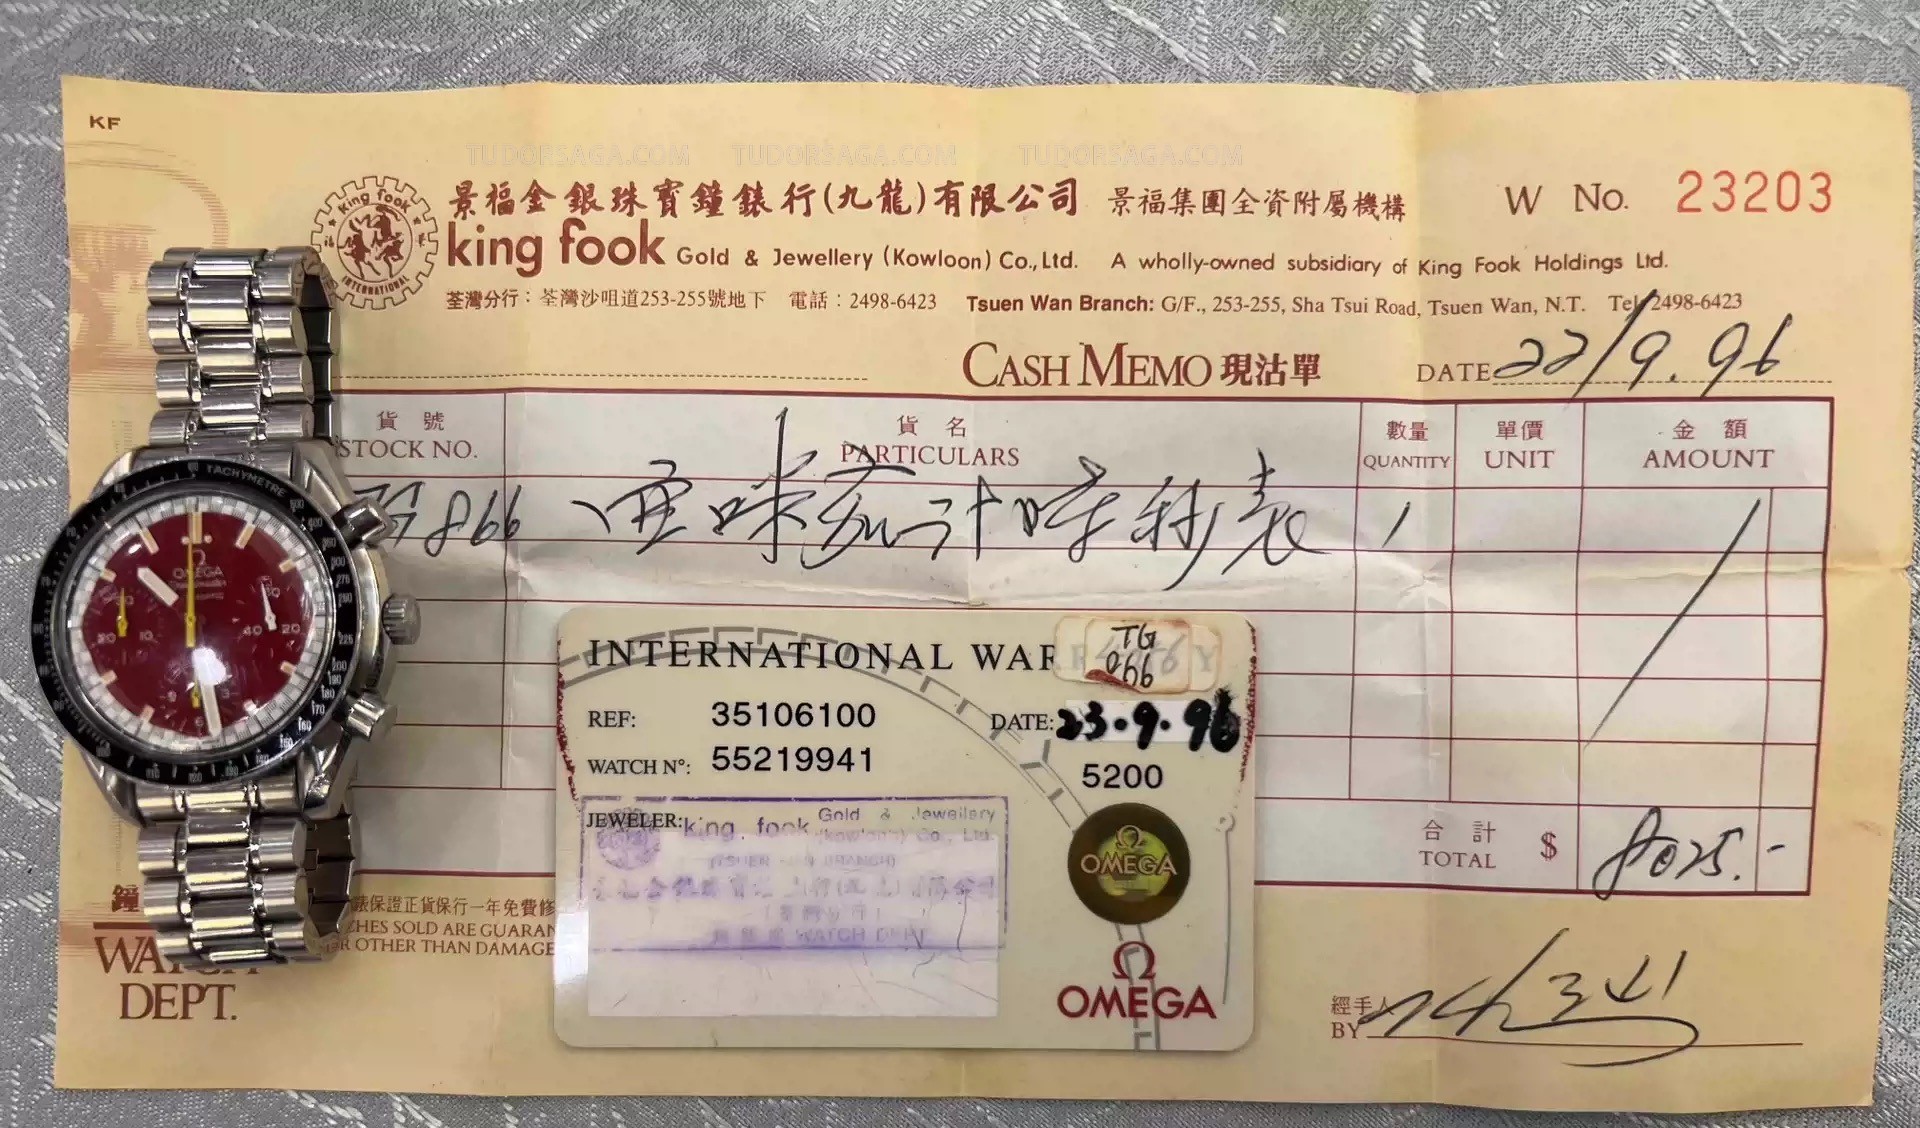 KF
TUDORSAGA.COM TUDORSAGA.COM TUDORSAGA.COM
King Fook
INTERNATIONAL
景福金銀珠寶鐘錶行(九龍)有限公司 景福集團全資附屬機構
W No. 23203
king fook Gold & Jewellery (Kowloon) Co., Ltd. A wholly-owned subsidiary of King Fook Holdings Ltd.
荃灣分行：荃灣沙咀道253-255號地下 電話：2498-6423 Tsuen Wan Branch: G/F., 253-255, Sha Tsui Road, Tsuen Wan, N.T. Tel: 2498-6423
CASH MEMO 現沽單 DATE 22/9.96
貨號 貨名 數量 單價 金額
STOCK NO. PARTICULARS QUANTITY UNIT AMOUNT
866 亞米茄计时秒表 1
TACHYMETRE
OMEGA
INTERNATIONAL WAR
TG
066
REF: 35106100 DATE: 23.9.96
WATCH Nº: 55219941 5200
JEWELER: king fook Gold & Jewellery
(Kowloon) Co., Ltd.
WATCH DEPT
OMEGA
OMEGA
合計
TOTAL $ 8025.-
鐘
錶保證正貨保行一年免費修
CHES SOLD ARE GUARAN
R OTHER THAN DAMAGE
WATCH
DEPT.
經手人
BY